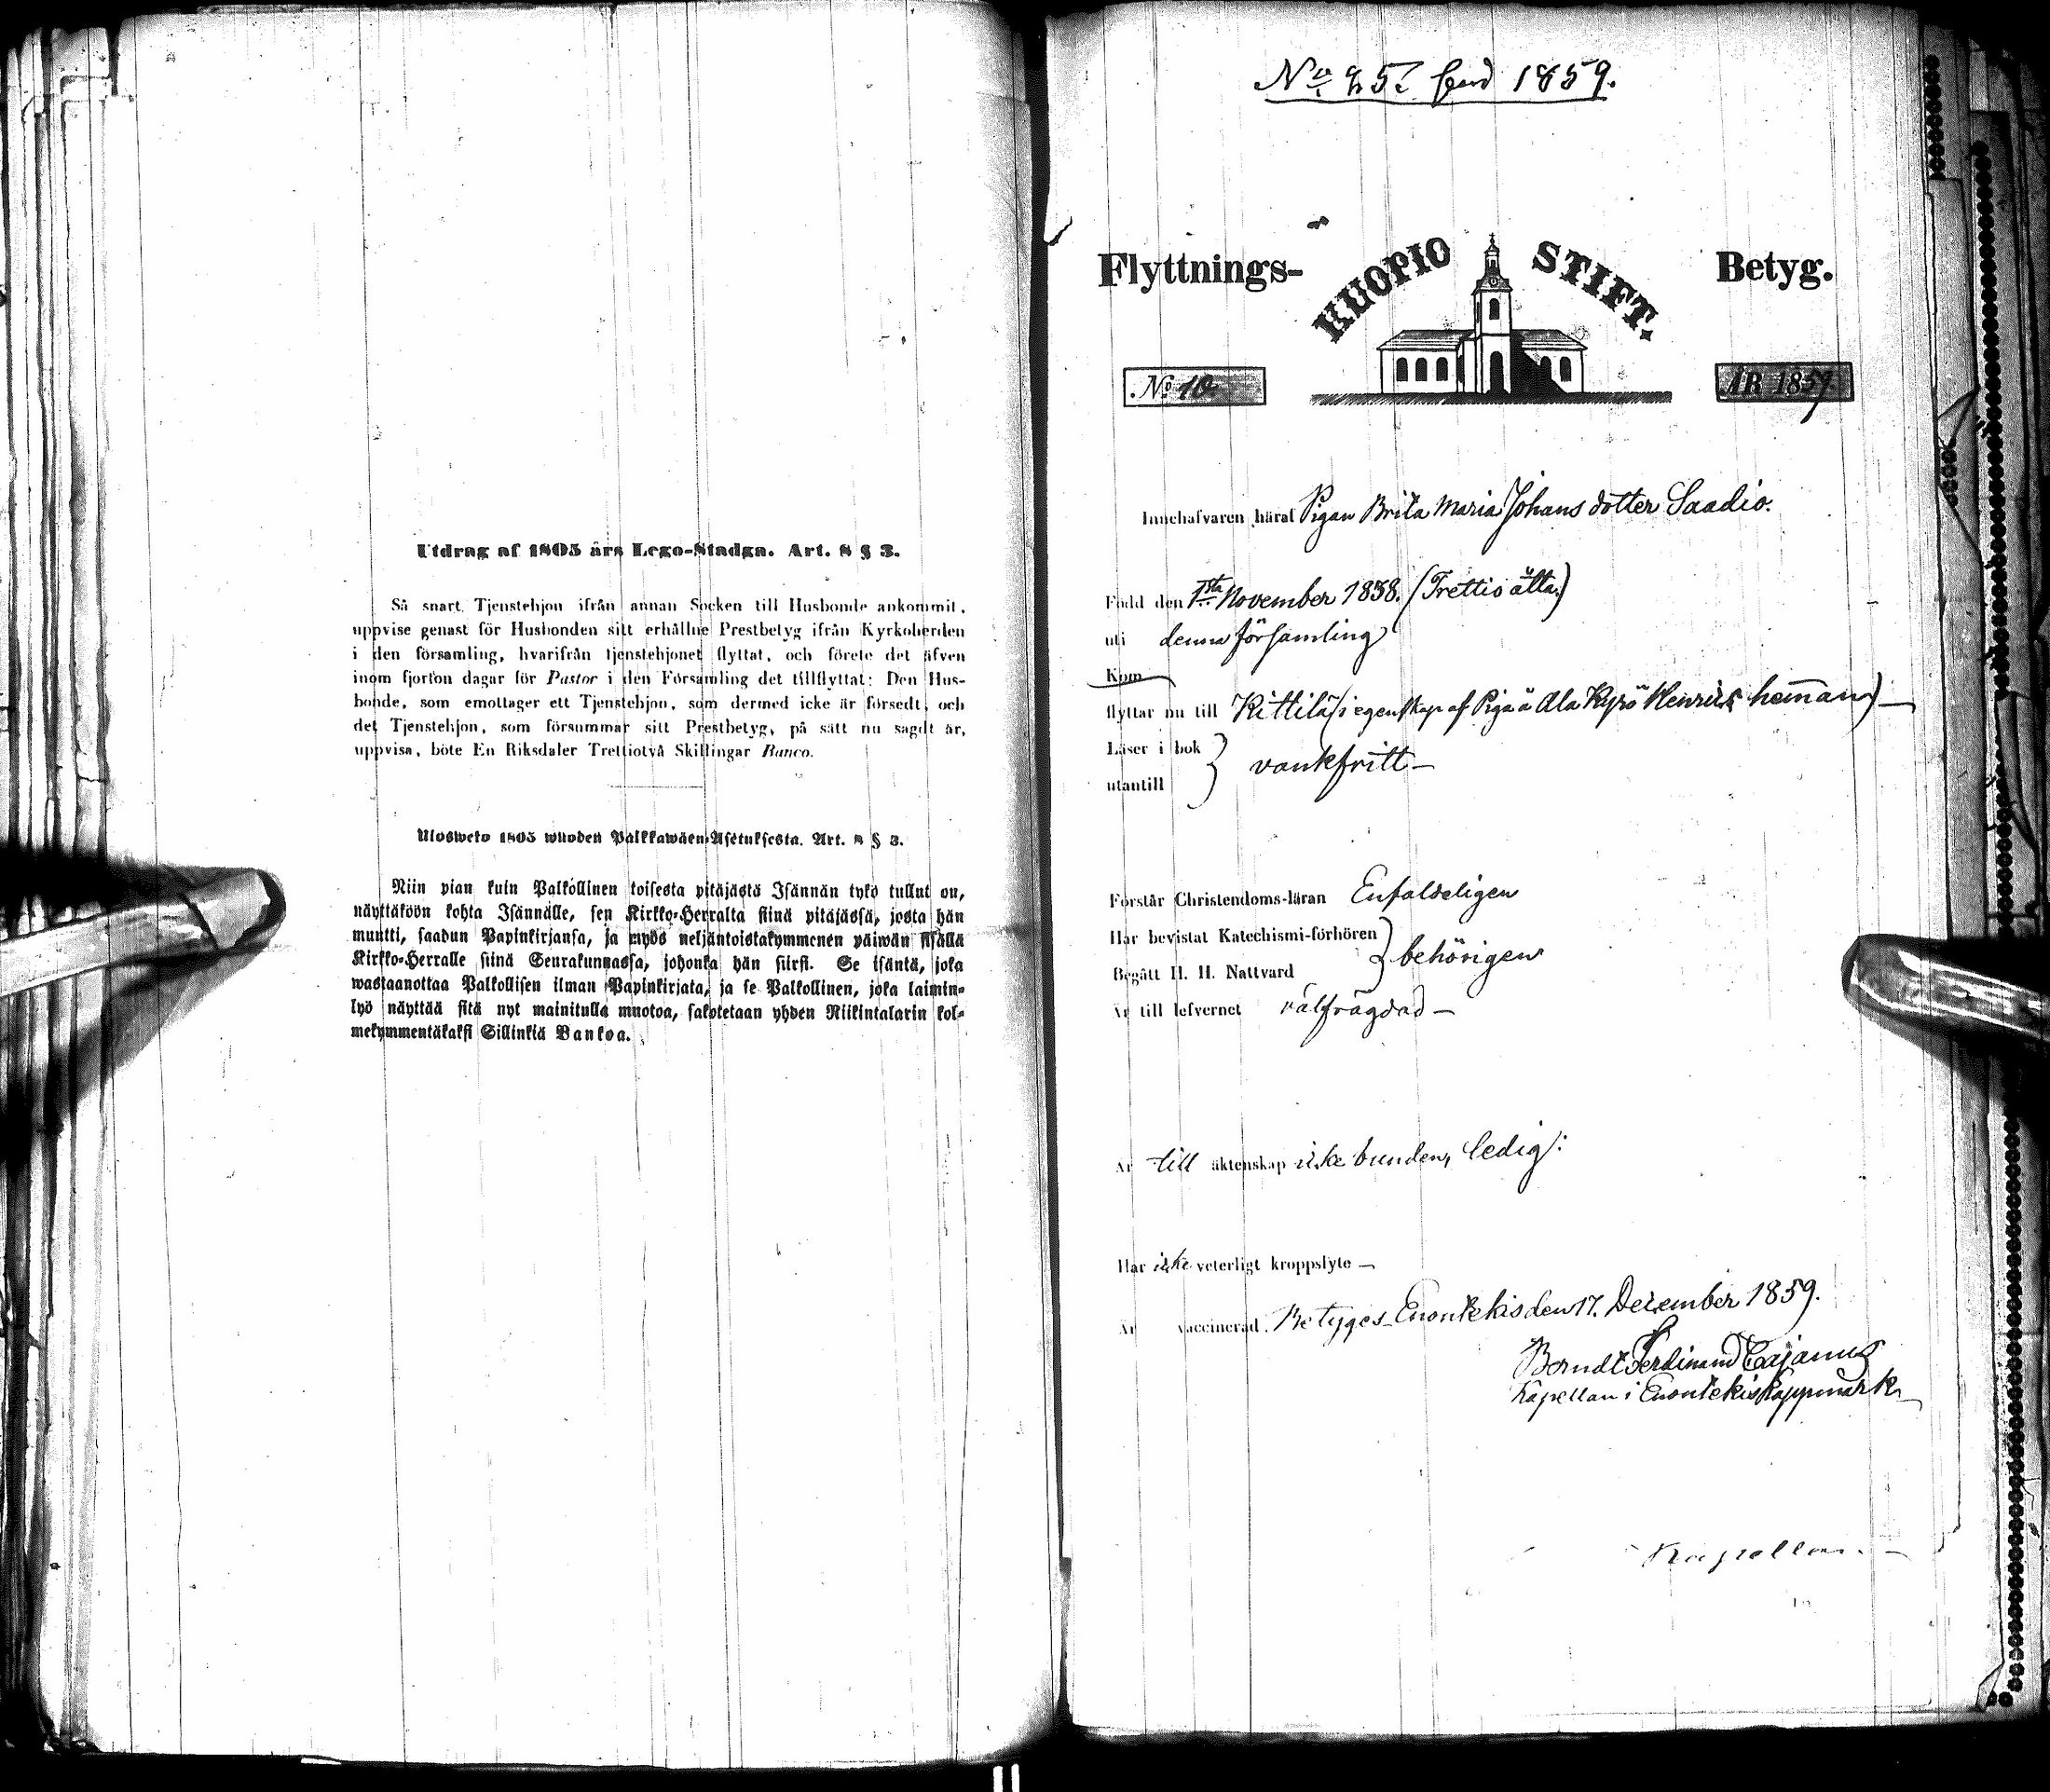 Utdrag af 1805 års Lego-Stadga. Art. 8 § 3.
Så snart Tjenstehjon ifrån annan Socken till Husbonde ankommit,
uppvise genast för Husbonden sitt erhållne Prestbetyg ifrån Kyrkoherden
i den församling, hvarifrån tjenstehjonet flyttat, och förete det äfven
inom fjorton dagar för Pastor i den Församling det tillflyttat: Den Hus-
bonde, som emottager ett Tjenstehjon, som dermed icke är försedt, och
det Tjenstehjon, som försummar sitt Prestbetyg, på sätt nu sagdt är,
uppvisa, böte En Riksdaler Trettiotvå Skillingar Banco.
Ulosweto 1805 wuoden Palkkawäen-Asetuksesta. Art. 8 § 3.
Niin pian kuin Palkollinen toisesta pitäjästä Isännän tykö tullut on,
näyttäköön kohta Isännälle, sen Kirkko-Herralta siinä pitäjässä, josta hän
muutti, saadun Papinkirjansa, ja myös neljäntoistakymmenen päiwän sisällä
Kirkko-Herralle siinä Seurakunnassa, johonka hän siirsi. Se isäntä, joka
wastaanottaa Palkollisen ilman Papinkirjata, ja se Palkollinen, joka laimin-
lyö näyttää sitä nyt mainitulla muotoa, sakotetaan yhden Riikintalarin kol-
mekymmentäkaksi Sillinkiä Bankoa.
1859.
Flyttnings- KUOPIO STIFT. Betyg.
No 10. ÅR 1859.
Innehafvaren häraf Pigan Brita Maria Johans dotter Saadio.
Född den 1sta November 1838. (Trettio åtta)
uti denna församling
Kom
flyttar nu till Kittilä (i egenskap af Piga å Ala Kyrö Henriks heman) —
Läser i bok
utantill } vankfritt —
Förstår Christendoms-läran Enfaldeligen
Har bevistat Katechismi-förhören
Begått H. H. Nattvard } behörigen
Är till lefvernet välfrägdad —
Är till äktenskap icke bunden, ledig:
Har icke veterligt kroppslyte —
Är vaccinerad. Betygas Enontekis den 17. December 1859.
Berndt Ferdinand Cajanus
Kapellan i Enontekis Lappmark
Kapellan. —